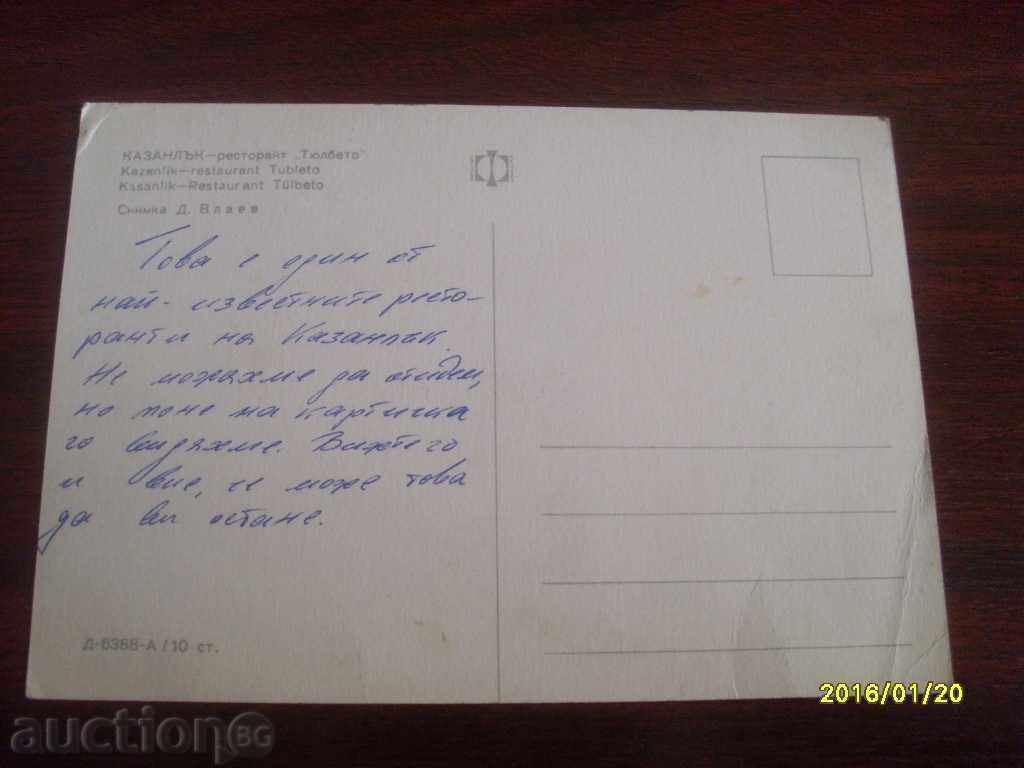 КАЗАНЛЪК—ресторант „Тюлбето"
Kazanlik—restaurant Tubleto
Kasanlik—Restaurant Tülbeto
Снимка Д. Влаев
Това е един от
най-известните ресто-
ранти на Казанлак.
Не можахме да отидем,
но поне на картичка
го видяхме. Вижте го
и вие, че може това
да ви остане.
Д-6388-А/10 ст.
2016/01/20
auction BG